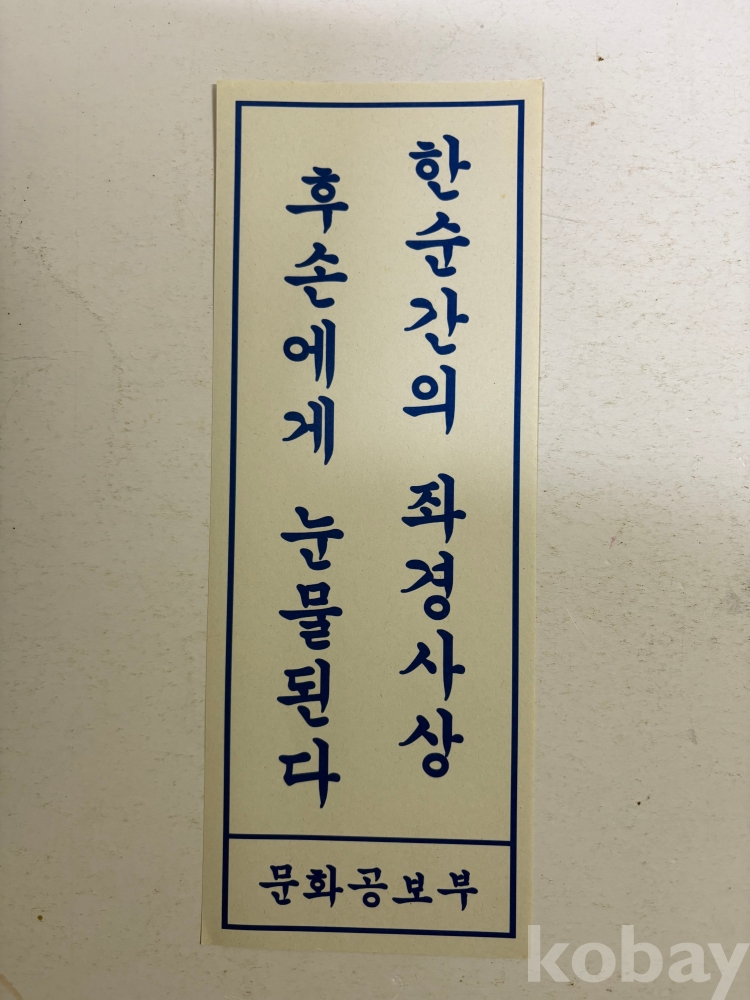 한순간의 좌경사상
후손에게 눈물된다
문화공보부
kobay